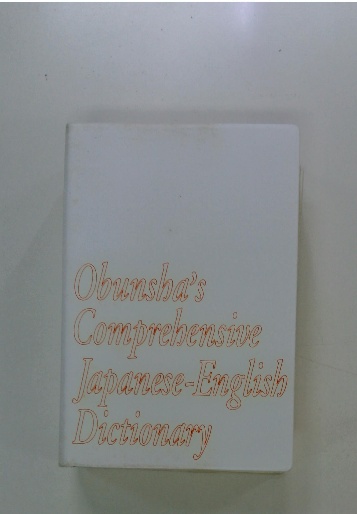 Obunsha's
Comprehensive
Japanese-English
Dictionary